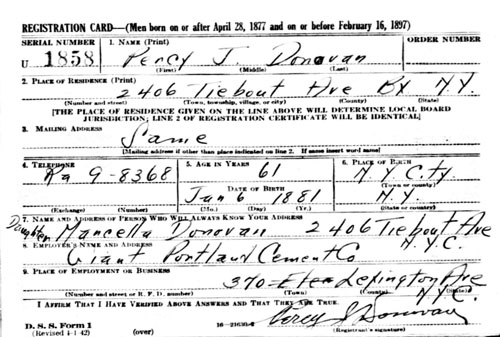 REGISTRATION CARD—(Men born on or after April 28, 1877 and on or before February 16, 1897)
SERIAL NUMBER 1. NAME (Print) ORDER NUMBER
U 1858 Percy J. Donovan
(First) (Middle) (Last)
2. PLACE OF RESIDENCE (Print)
2406 Tiebout Ave Bx N.Y.
(Number and street) (Town, township, village, or city) (County) (State)
[THE PLACE OF RESIDENCE GIVEN ON THE LINE ABOVE WILL DETERMINE LOCAL BOARD
JURISDICTION; LINE 2 OF REGISTRATION CERTIFICATE WILL BE IDENTICAL]
3. MAILING ADDRESS
Same
[Mailing address if other than place indicated on line 2. If same insert word same]
4. TELEPHONE 5. AGE IN YEARS 6. PLACE OF BIRTH
Ra 9-8368 61 N.Y. City
DATE OF BIRTH (Town or county)
Jan 6 1881 N.Y.
(Exchange) (Number) (Mo.) (Day) (Yr.) (State or country)
7. NAME AND ADDRESS OF PERSON WHO WILL ALWAYS KNOW YOUR ADDRESS
Daughter Mancella Donovan 2406 Tiebout Ave
8. EMPLOYER'S NAME AND ADDRESS N.Y.C.
Giant Portland Cement Co
9. PLACE OF EMPLOYMENT OR BUSINESS
370 Lexington Ave
(Number and street or R. F. D. number) (Town) (County) (State)
N.Y.C.
I AFFIRM THAT I HAVE VERIFIED ABOVE ANSWERS AND THAT THEY ARE TRUE.
D. S. S. Form 1
(Revised 4-1-42) (over) 16—21630-2 (Registrant's signature)
Percy J Donovan